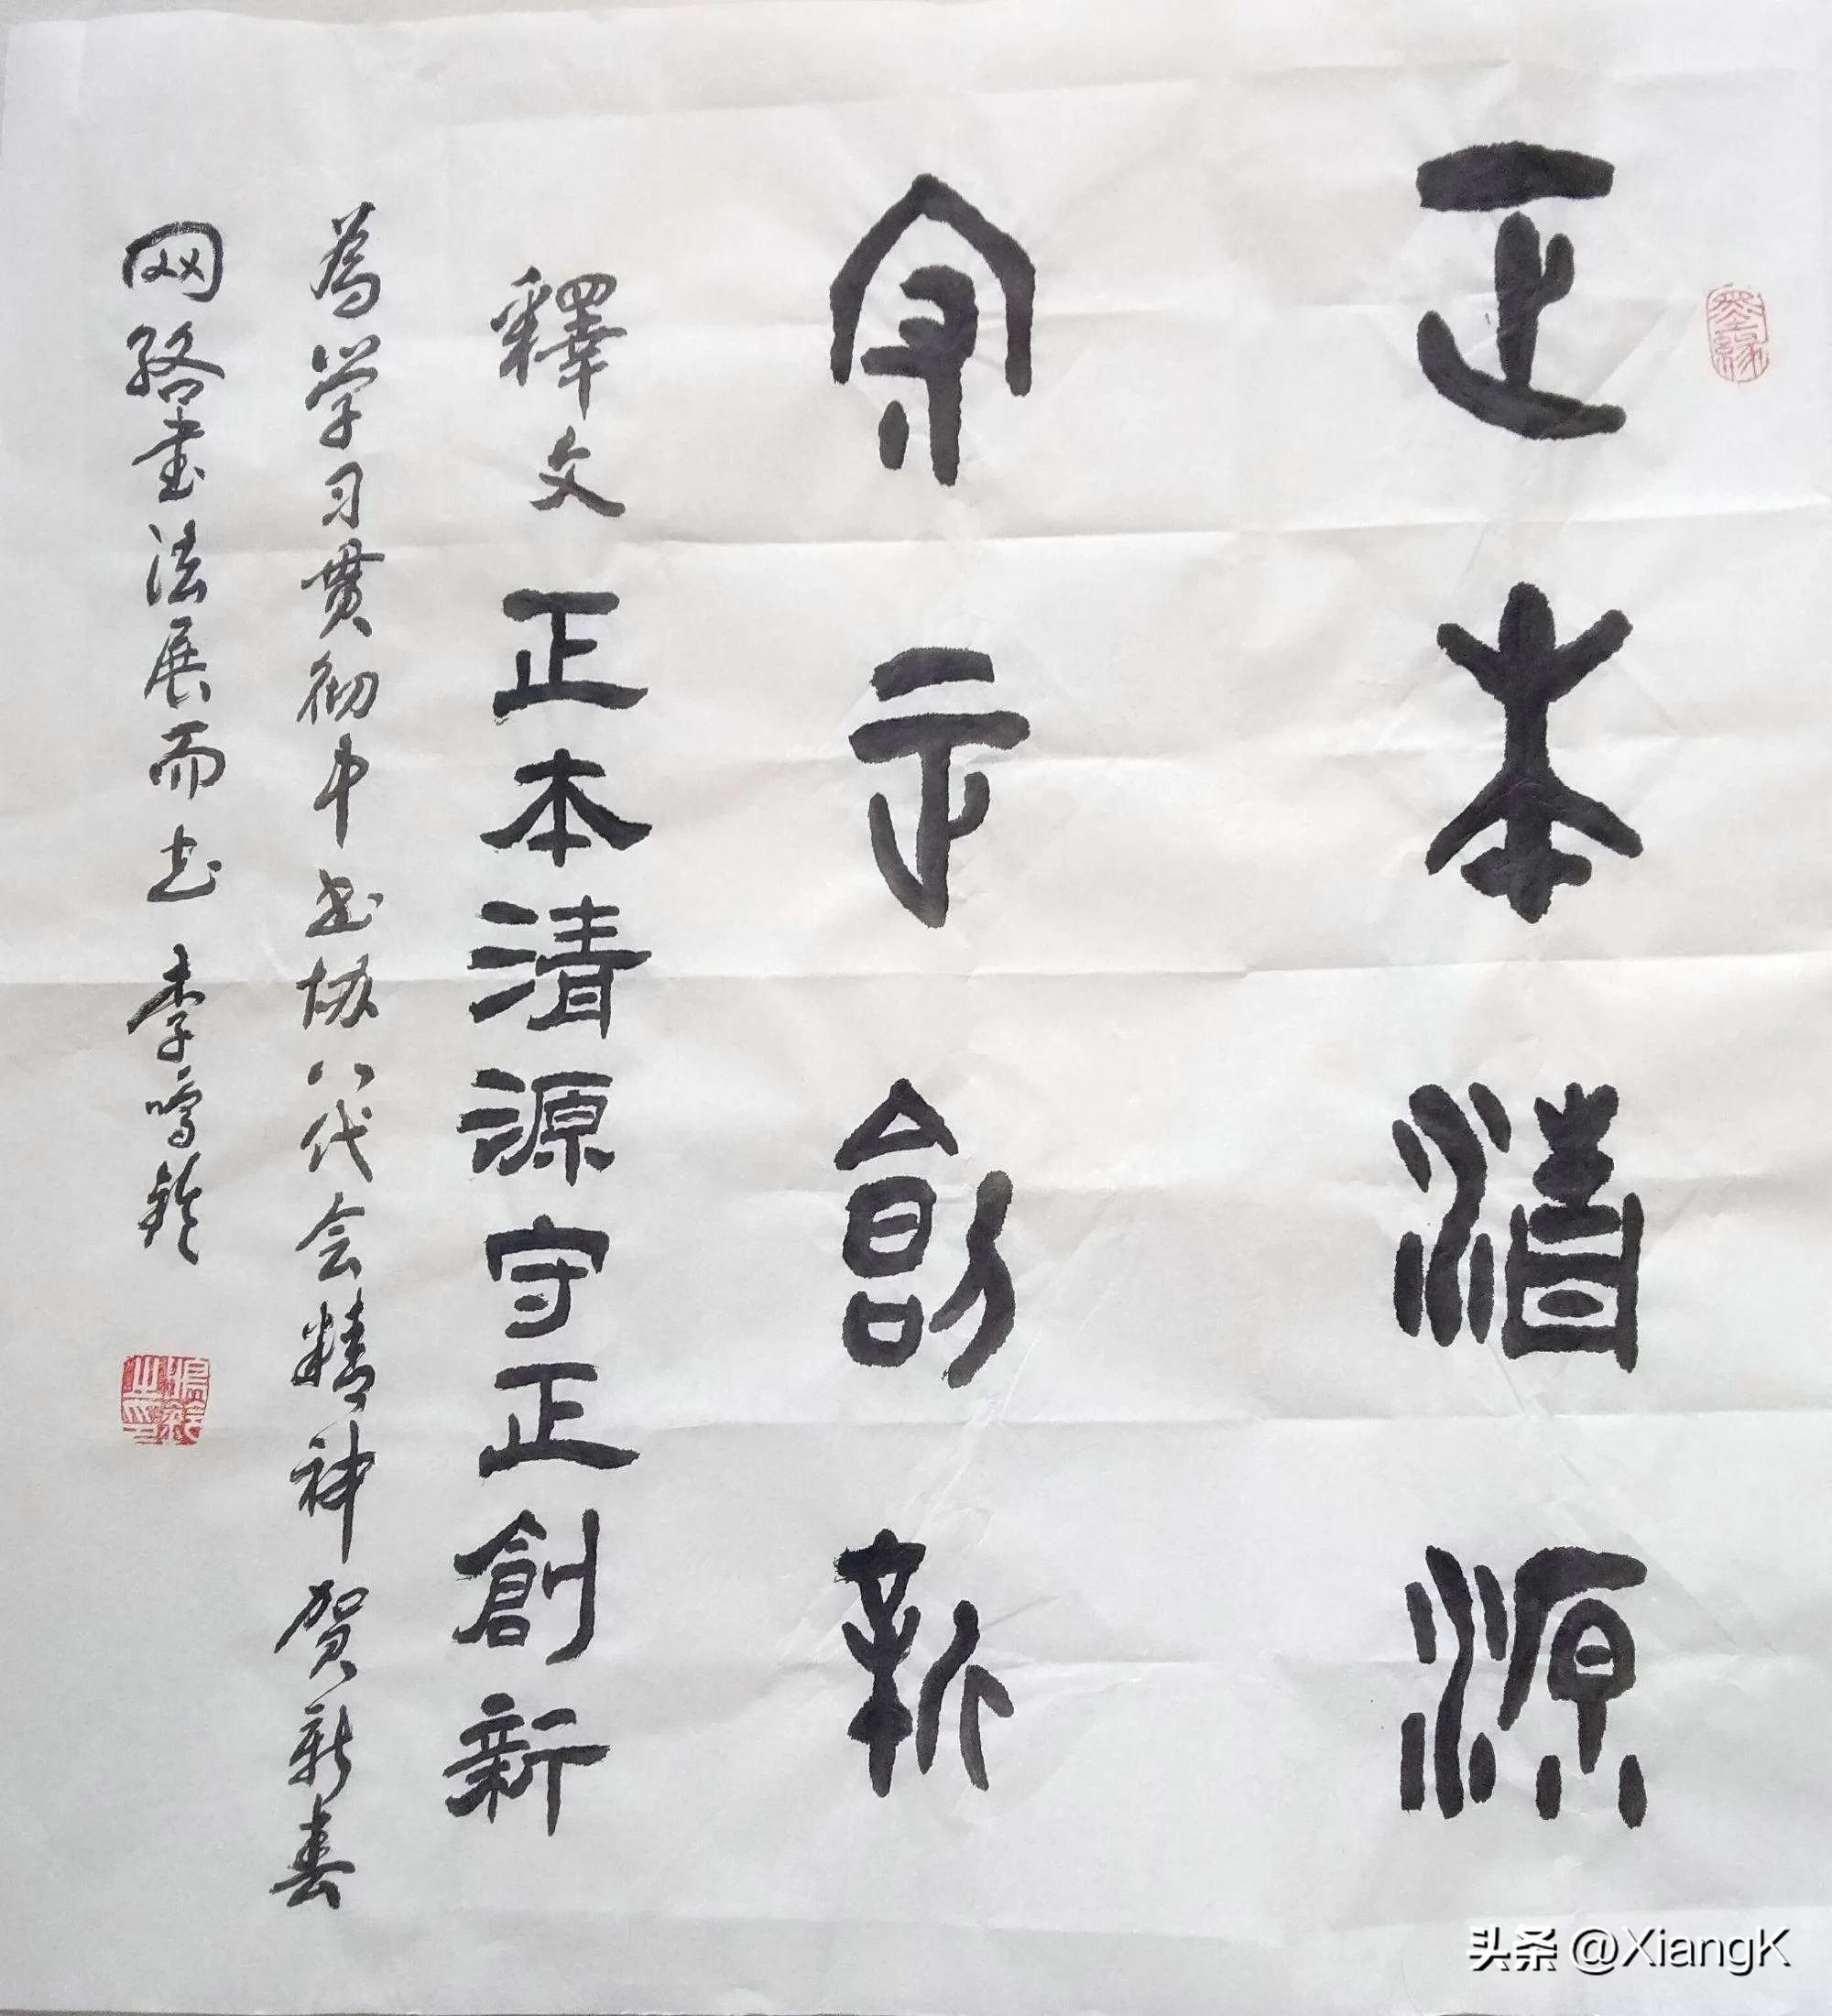 正本清源
守正創新
釋文 正本清源守正創新
為学习贯彻中书协八代会精神贺新春
网络書法展而书 李鸣铃
墨缘
头条 @XiangK